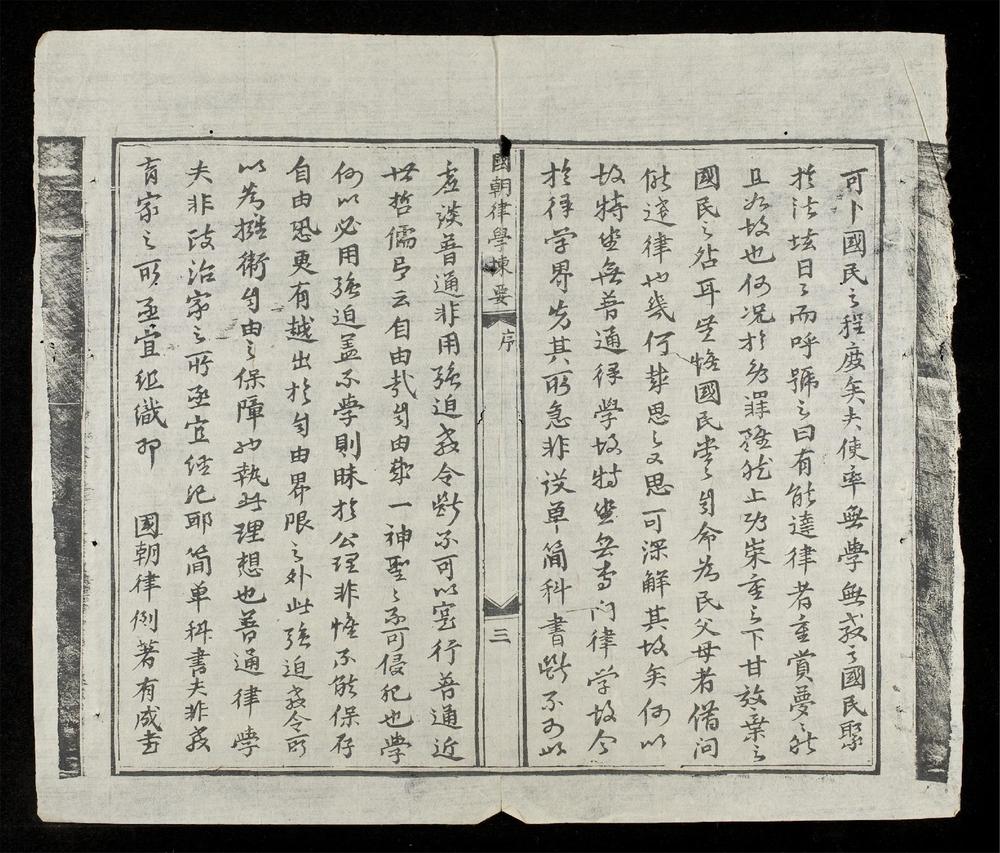 可卜國民之程度矣夫使率無學無敎之國民聚
於法坛日之而呼號之曰有能達律者重賞憂之能
且故也何況於為罪雖然上功崇重之下甘放棄之
國民之玷耳豈惟國民嘗之自命為民父母者借问
能達律也幾何 思之又思可深解其故矣何以
故特坐無普通律学故特坐無專门律学故今
於律学界先其所急非设单简科書斷不可以
國朝律學揀要
序
三
虛談普通非用强迫敎令斷不可以寔行普通近
世哲儒曰云自由哉自由 一神聖之不可侵犯也學
何以必用强迫盖不學則昧於公理非惟不能保存
自由恐更有越出於自由界限之外此强迫敎令所
以為 術自由之保障也執此理想也普通律學
夫非政治家之所亟宜经纪耶简单科書夫非敎
育家之所亟宜组織耶 國朝律例著有成书